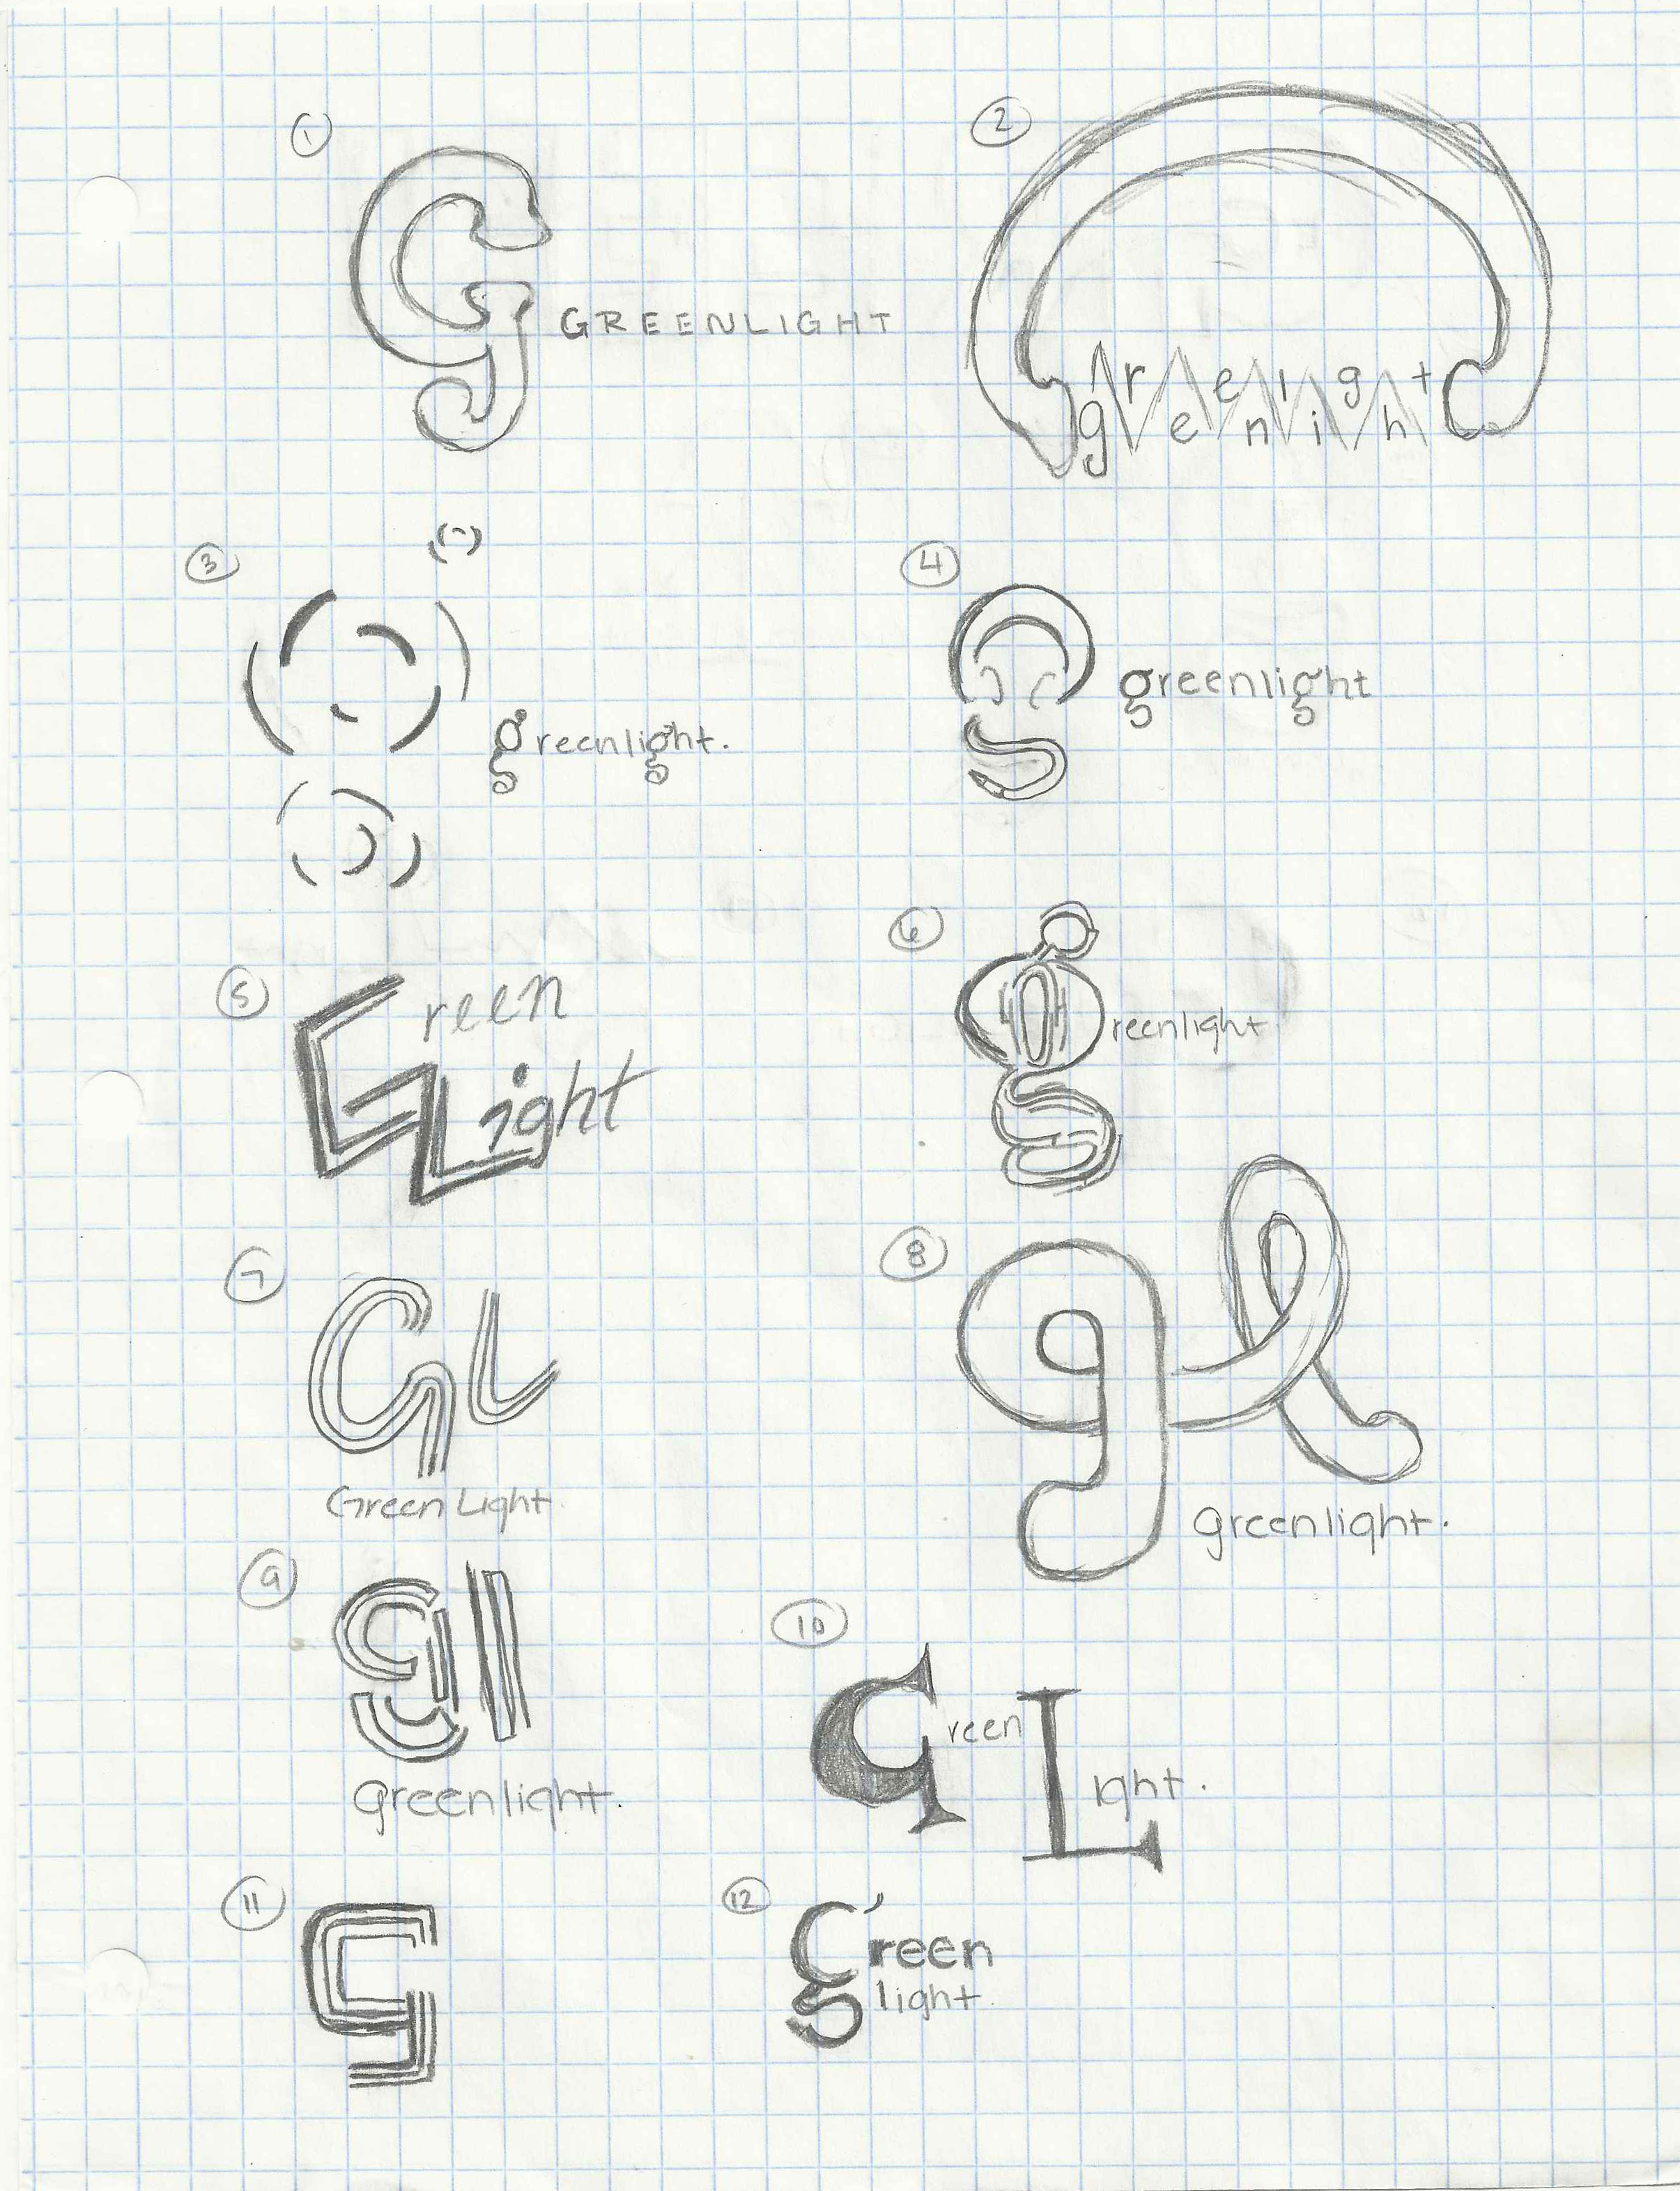 1
G
GREENLIGHT
2
greenlight
3
greenlight.
4
g
greenlight
5
Green
Light
6
greenlight
7
GL
Green Light
8
gl
greenlight.
9
gl
greenlight.
10
Green
Light.
11
g
12
green
light